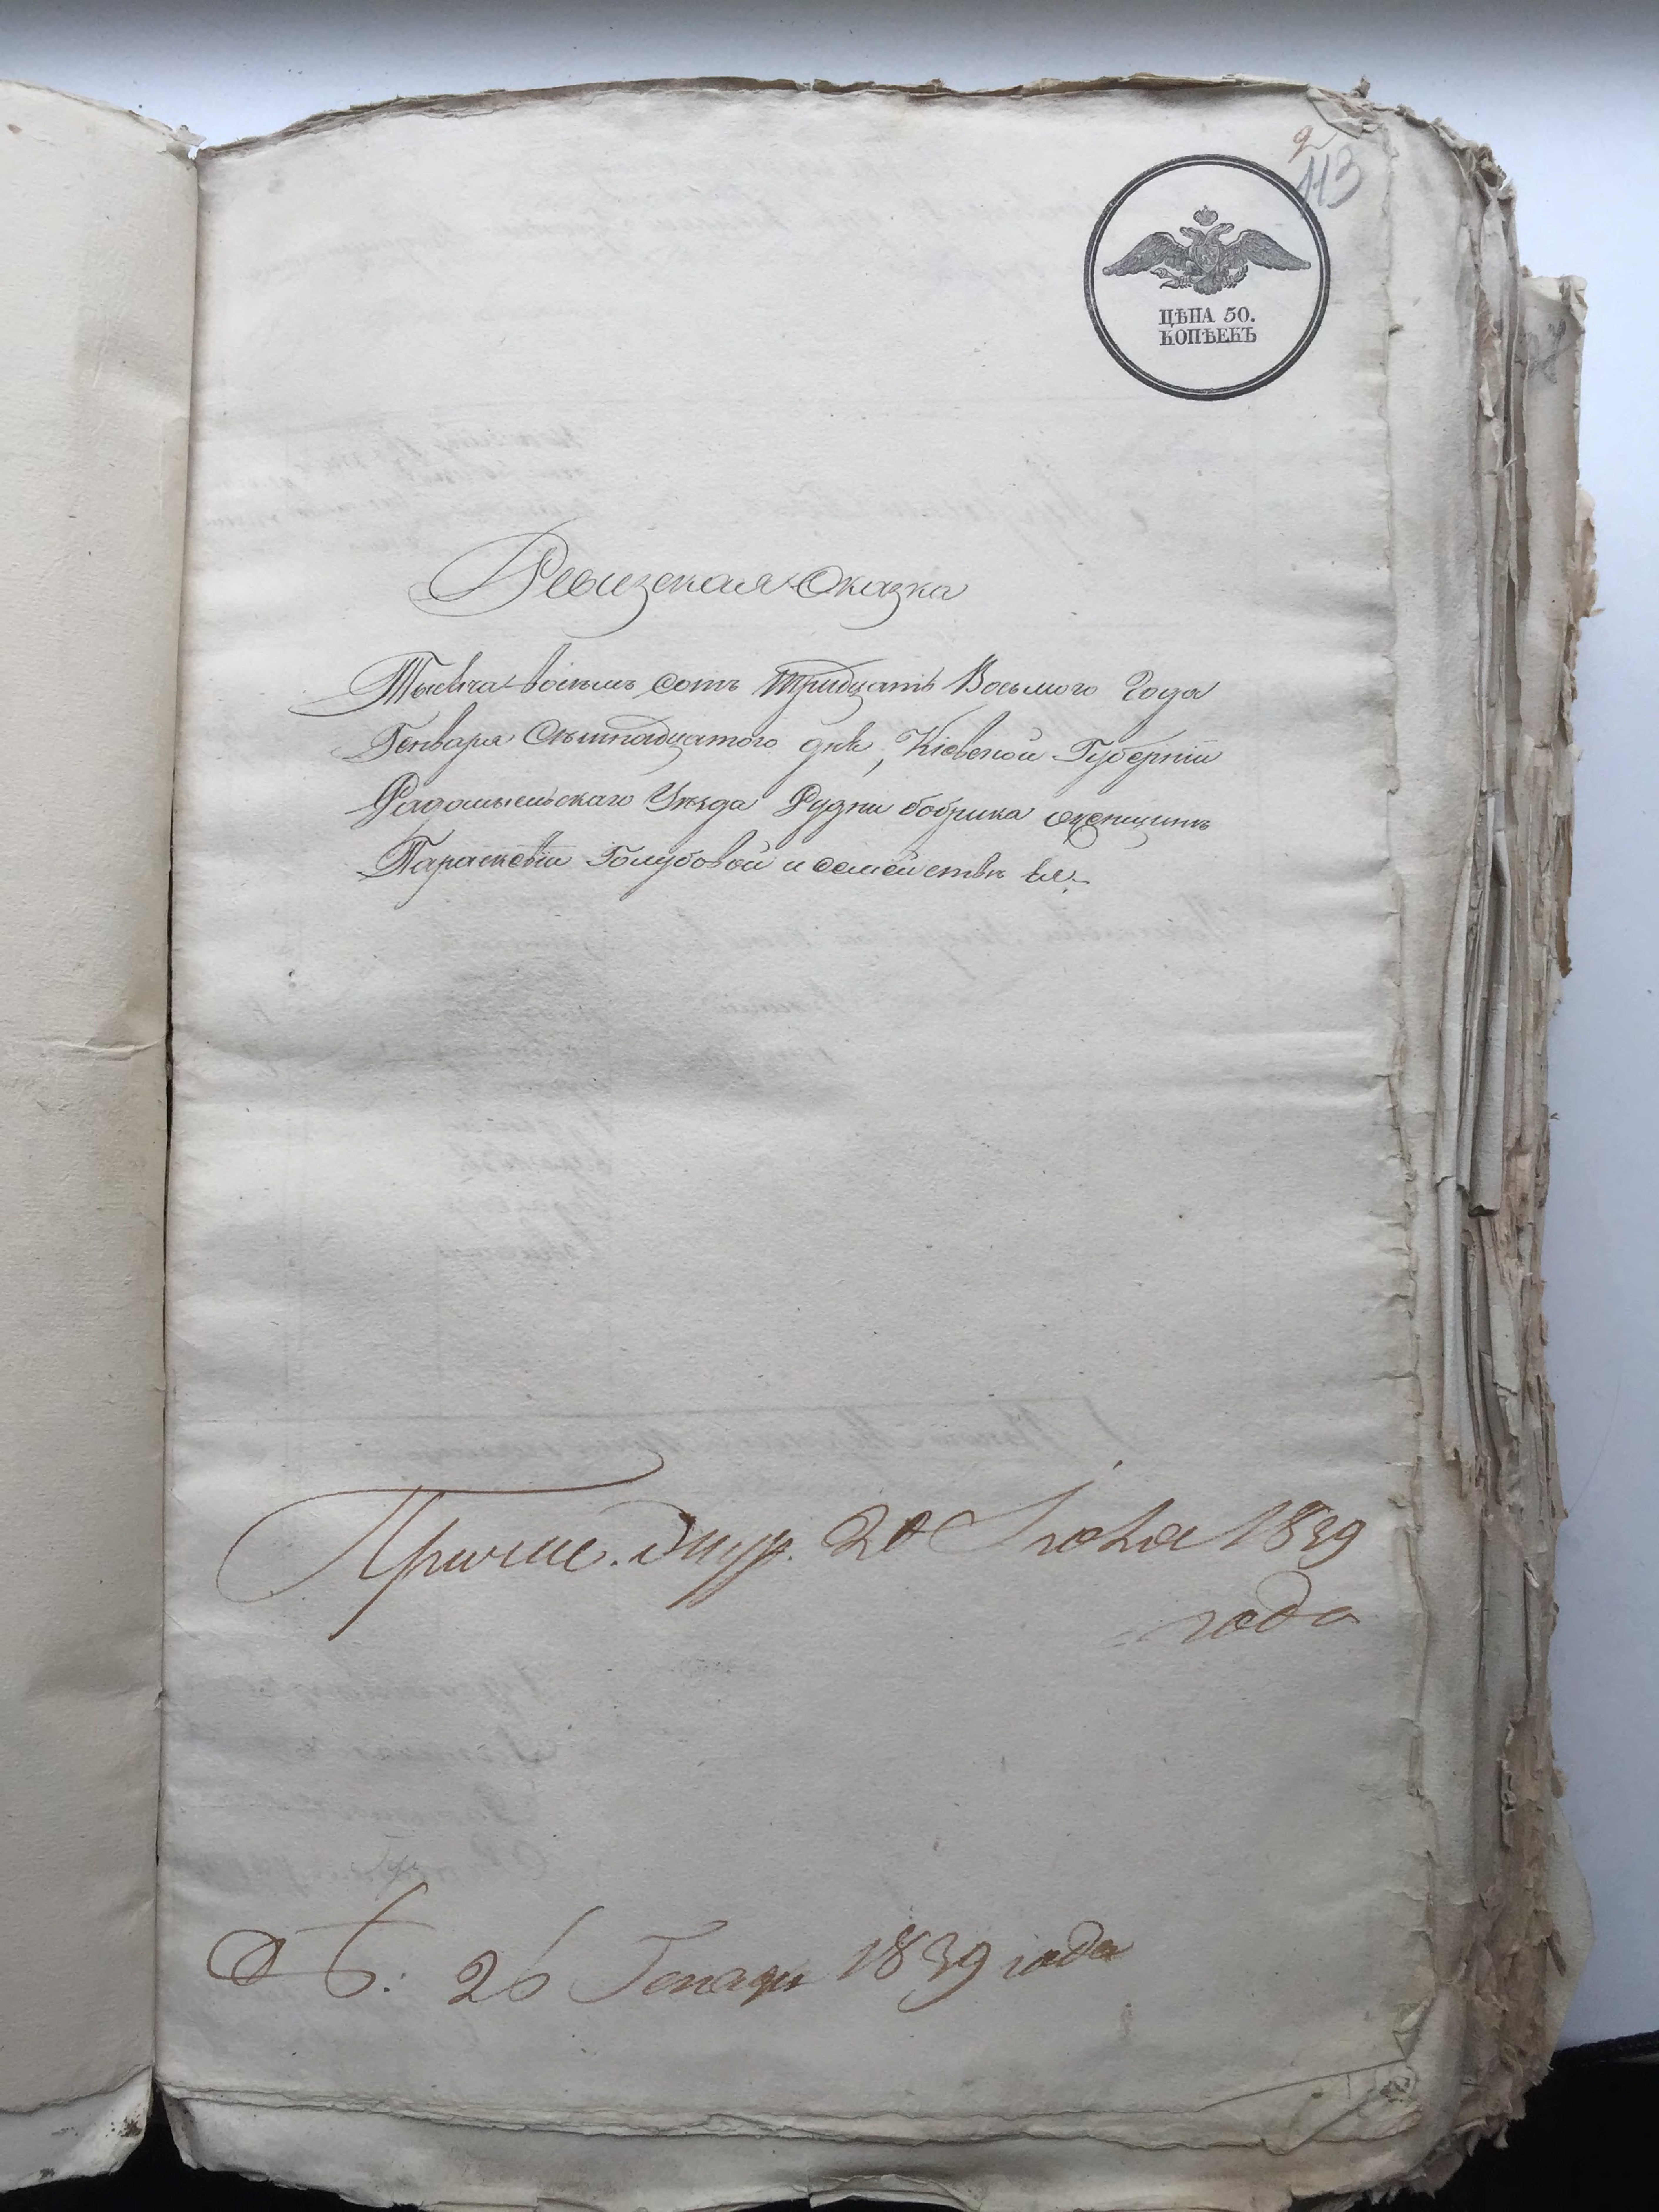 2
113
ЦѢНА 50.
КОПѢЕКЪ
Ревизская Сказка
Тысяча восемь сотъ тридцать Восьмого Года
Генваря Семнадцатого дня, Кіевской Губерніи
Радомысльскаго Уѣзда Рудни бобрика
Параскевіи Голубовой и семействѣ ея
20 1839
года
26 Генваря 1839 года